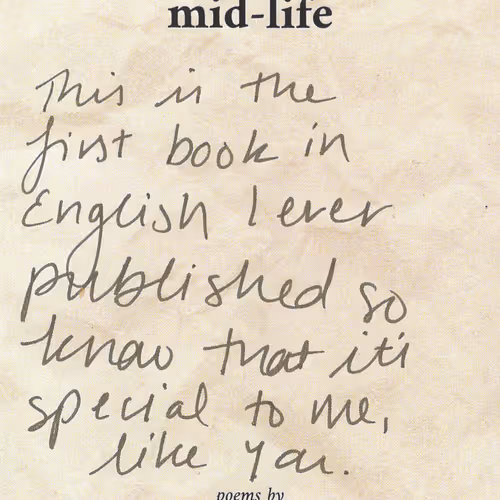 mid-life
This is the
first book in
English I ever
published so
know that it's
special to me,
like you.
poems by